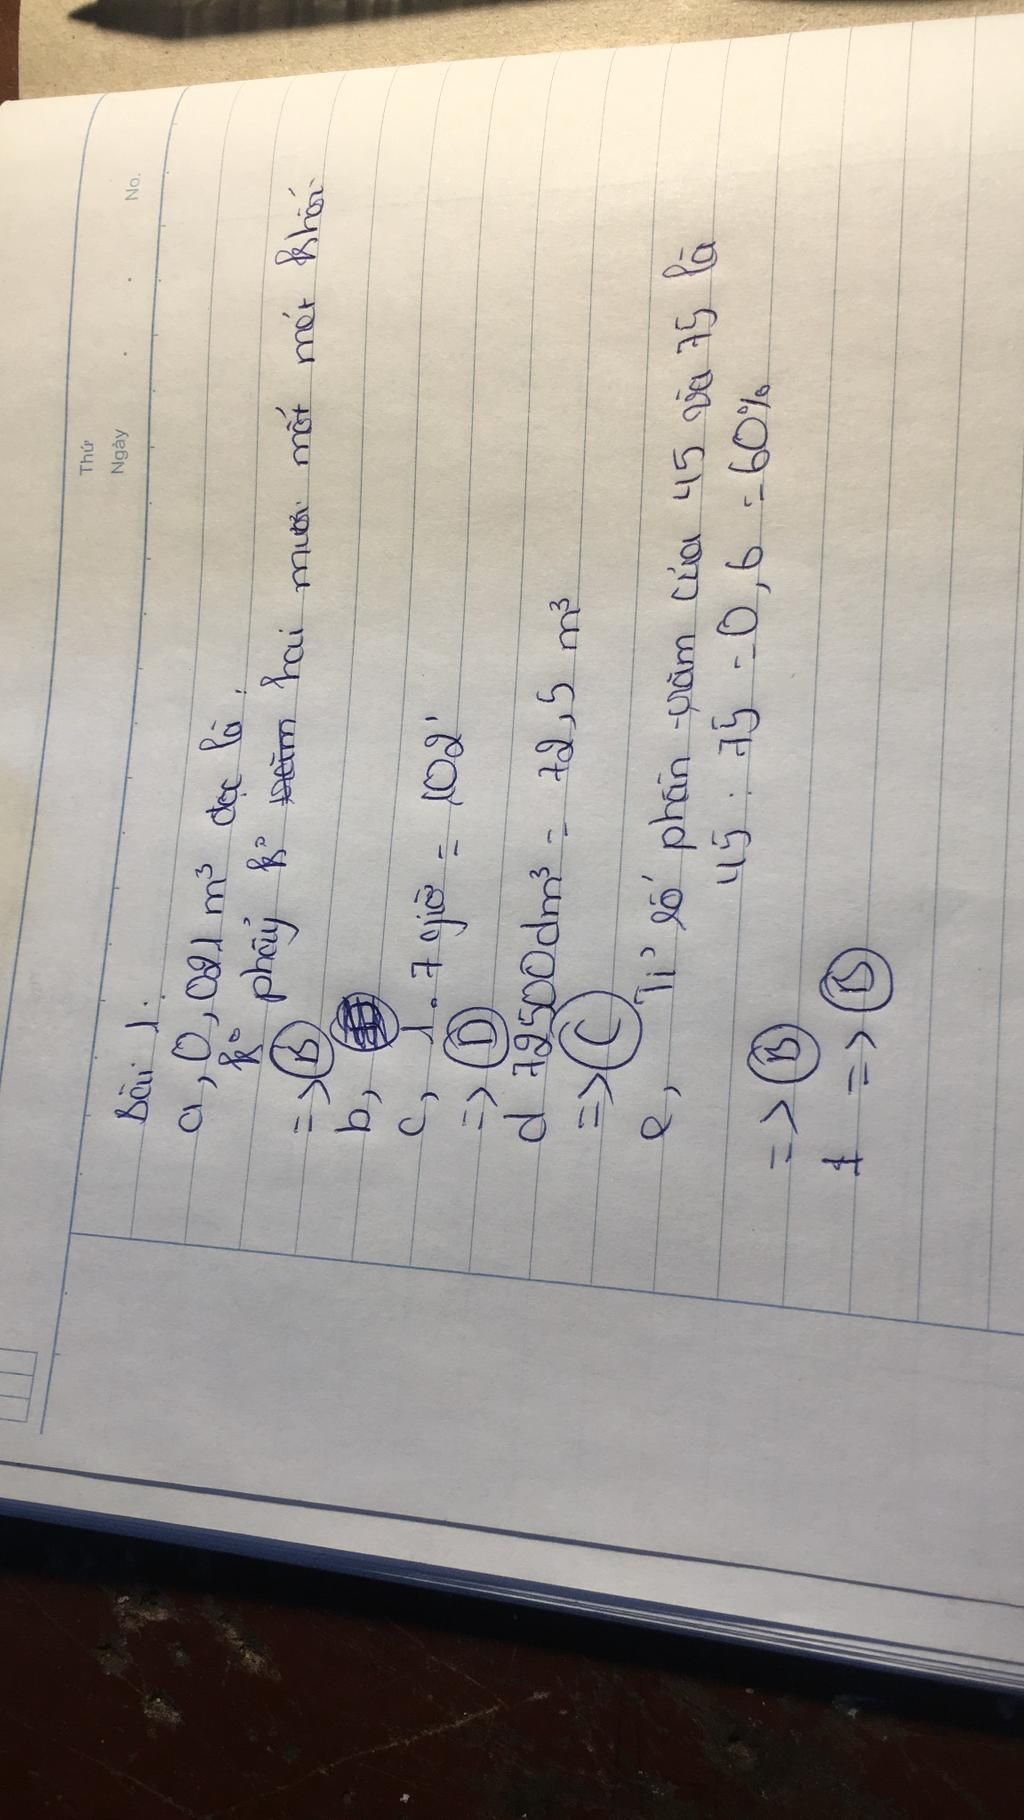 Thứ
Ngày . . No.
Bài 1:
a, 0,021 m³ đọc là:
ko phẩy ko hai mươi mốt mét khối
=> B
b,
c, 1.7 giờ = 102'
=> D
d 72500dm³ = 72,5 m³
=> C
e, Tỉ số phần trăm của 45 và 75 là
45 : 75 = 0,6 = 60%
=> B
f => B